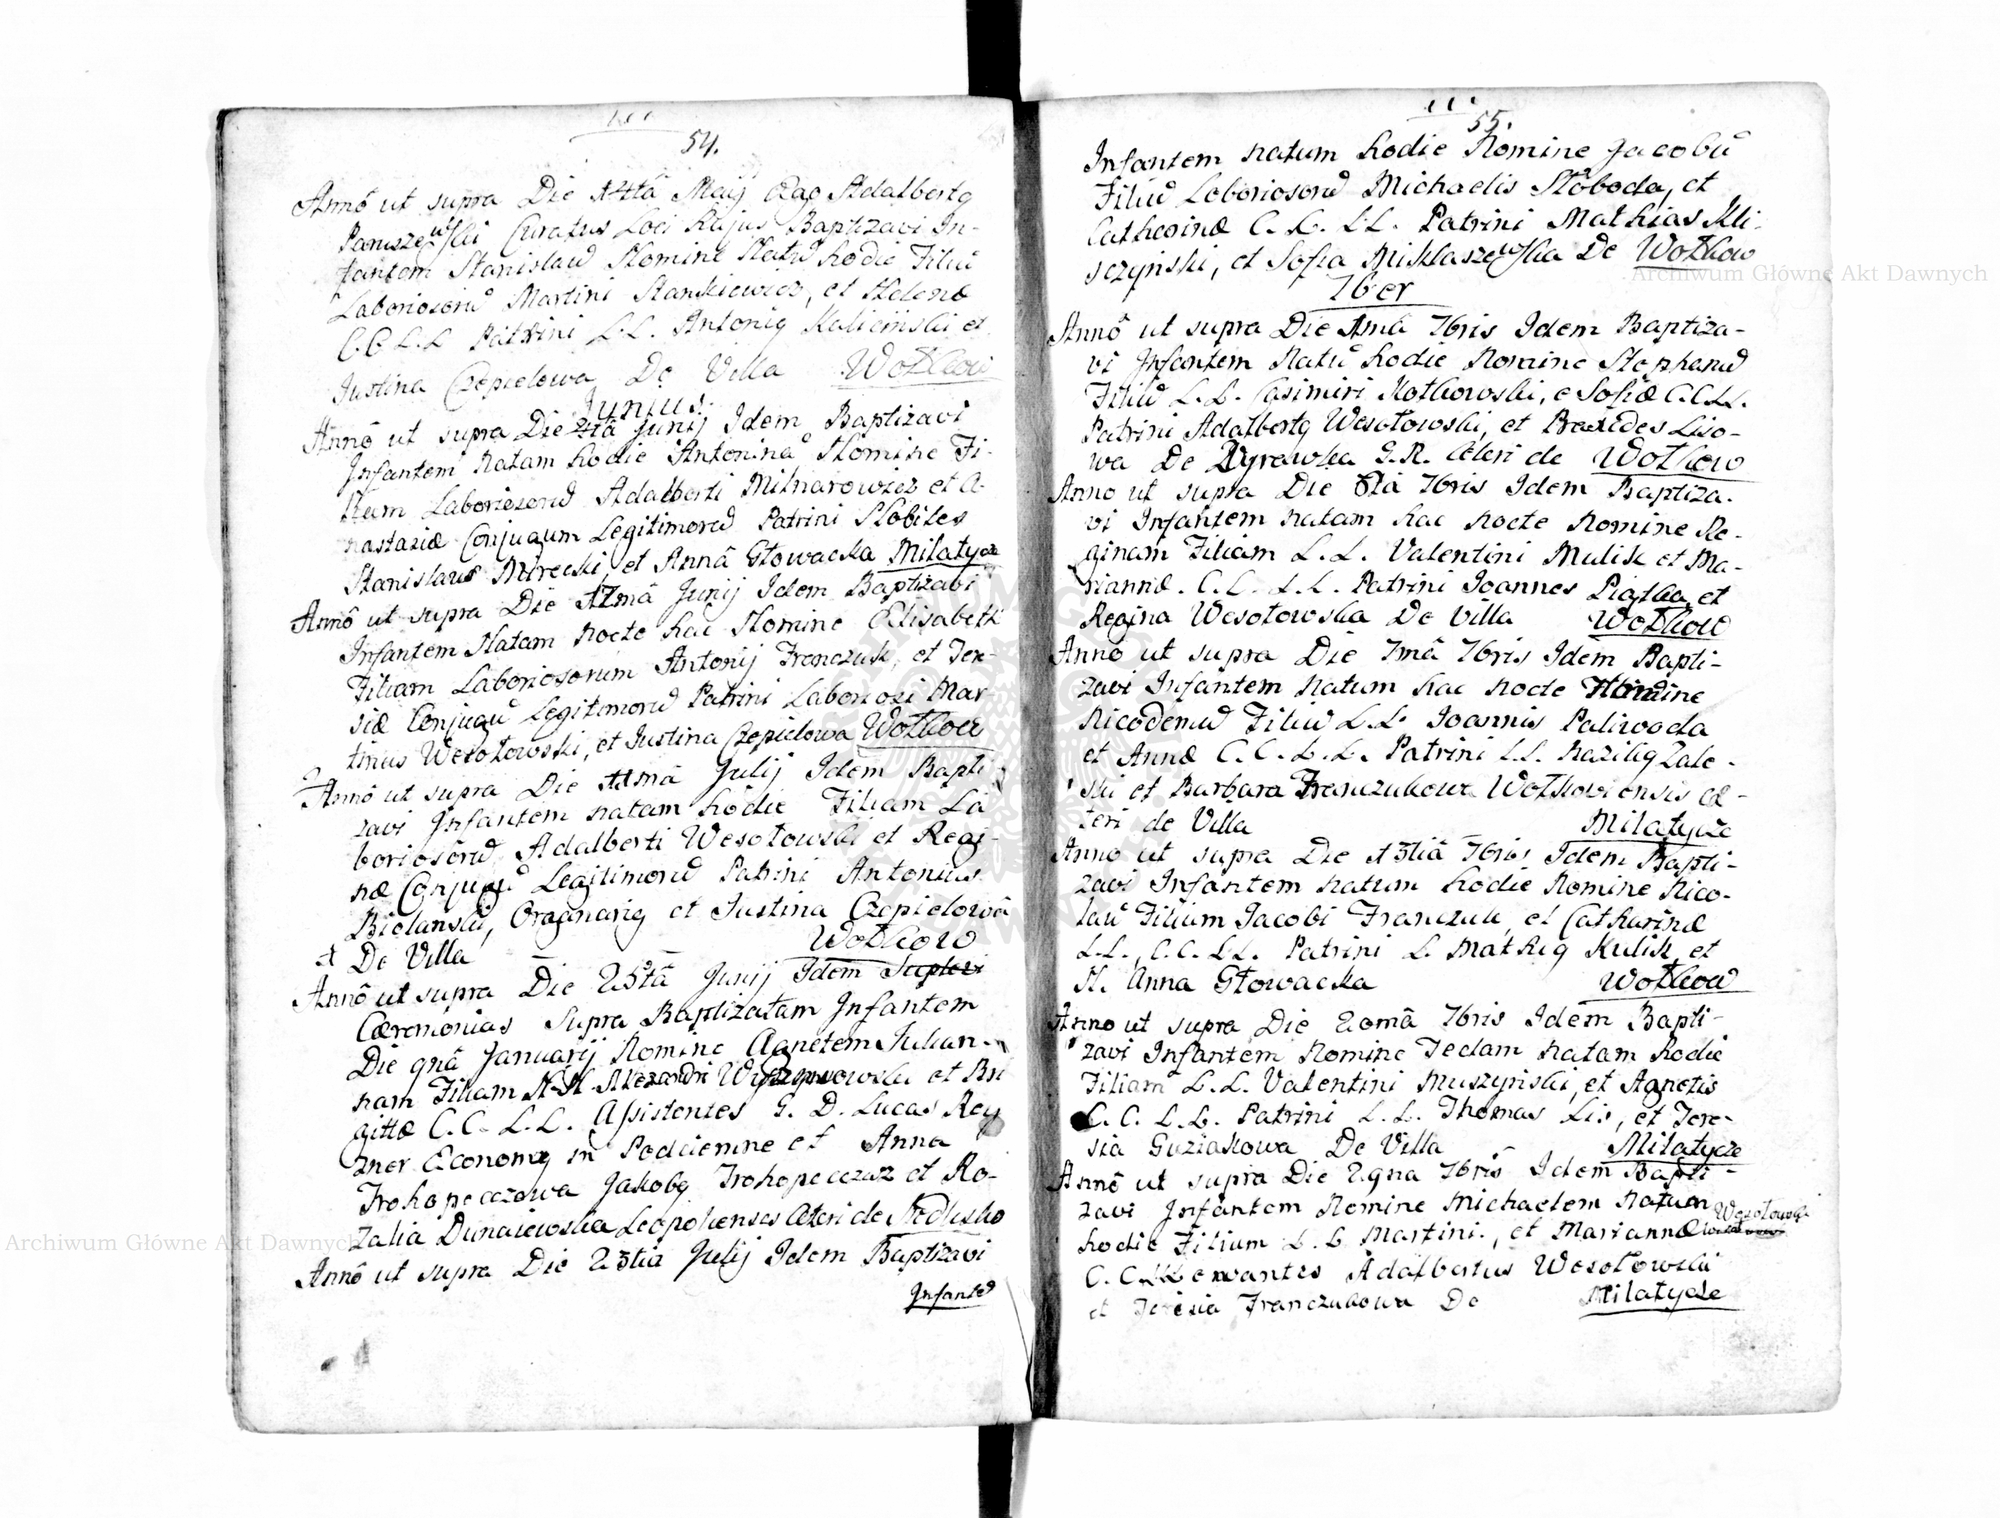 54.
Annô ut supra Die 14tâ Maij Ego Adalbertq
Paruszewski Curatus Loci hujus Baptizavi In-
fantem Stanislaū Nomine Natū hodie Filiū
Laboriosorū Martini Stankiewicz, et Helenæ
C.C L.L Patrini L.L. Antoniq Kaliciński et
Justina Czepielowa De Villa Wołkow
Junius.
Annô ut supra Die 4tâ Junij Idem Baptizavi
Infantem natam hodie Antoninā Nomine Fi-
liam Laboriosorū Adalberti Milnarowicz et A-
nastasiæ Conjugum Legitimorū Patrini Nobiles
Stanislaus Mirecki et Annâ Głowacka Milatycze
Annô ut supra Die 17mâ Junij Idem Baptizavi
Infantem Natam nocte hac Nomine Elisabeth
Filiam Laboriosorum Antonij Frenczuk, et Tere-
siæ Conjugū Legitimorū Patrini Laboriosi Mar
tinus Wesołowski, et Justina Czepielowa Wołkow
Annô ut supra Die 11mâ Julij Idem Bapti
zavi Infantem natam hodie Filiam La
boriosorū Adalberti Wesołowski et Regi-
næ Conjugū Legitimorū Patrini Antonius
Bielański, Organariq et Justina Czepielowa
De Villa Wołkow
Annô ut supra Die 25tâ Junij Idem Suplevi
Cæremonias Supra Baptizatam Infantem
Die 9nâ Januarij Nomine Agnetem Julian-
nam Filiam N.N. Alexandri et Bri
gittæ C.C. L.L. Assistentes G. D. Lucas Rey
zner Economq in Podciemne et Anna
Prohopeczowa Jakobq Prohopeczaz et Ro-
zalia Dunaiewska Leopoliensis Cæteri de
Annô ut supra Die 23tia Julij Idem Baptizavi
Infantē
55.
Infantem natum hodie Nomine Jacobū
Filiū Laboriosorū Michaelis Słoboda, et
Catherinæ C. C. L.L. Patrini Mathias Kli-
szczyński, et Sofia Miklaszewska De Wołkow
7ber
Annô ut supra Die 1mâ 7bris Idem Baptiza-
vi Infantem Natū hodie Nomine Stephanū
Filiū L.L. Casimiri Kotkowski, e Sofiæ C.C.L.L.
Patrini Adalbertq Wesołowski, et Praxides Liso-
wa De Zyrawka G.R. Cæteri de Wołkow
Anno ut supra Die 8va 7bris Idem Baptiza-
vi Infantem natam hac nocte nomine Re-
ginam Filiam L.L. Valentini Mulik et Ma-
riannæ. C.C. L.L. Patrini Joannes Piątka et
Regina Wesołowska De Villa Wołkow
Annô ut supra Die 7mâ 7bris Idem Bapti-
zavi Infantem natum hac nocte Nomine
Nicodemū Filiū L.L. Joannis Paliwoda
et Annæ C.C. L.L. Patrini L.L. Baziliq Zale-
ski et Barbara Frenczukowa Wołkowiensis Cæ-
teri de Villa Milatycze
Anno ut supra Die 13tiâ 7bris Idem Bapti-
zavi Infantem natum hodie Nomine Nico-
laū Filium Jacobi Franczuk, et Catharinæ
L.L., C.C. LL. Patrini L. Mathiq Kulik, et
N. Anna Głowacka Wołkow
Anno ut supra Die 20mâ 7bris Idem Bapti-
zavi Infantem Nomine Teclam natam hodie
Filiam L.L. Valentini Muszyński, et Agnetis
C.C. L.L. Patrini L.L. Thomas Lis, et Tere-
sia Guziakowa De Villa Milatycze
Annô ut supra Die 29na 7bris Idem Bapti-
zavi Infantem Nomine Michaelem Natum
hodie Filium L.L Martini, et Mariannæ Wesołowski
C.C. Adalbertus Wesołowski
et Teresia Franczukowa De Milatycze
Archiwum Główne Akt Dawnych
Archiwum Główne Akt Dawnych